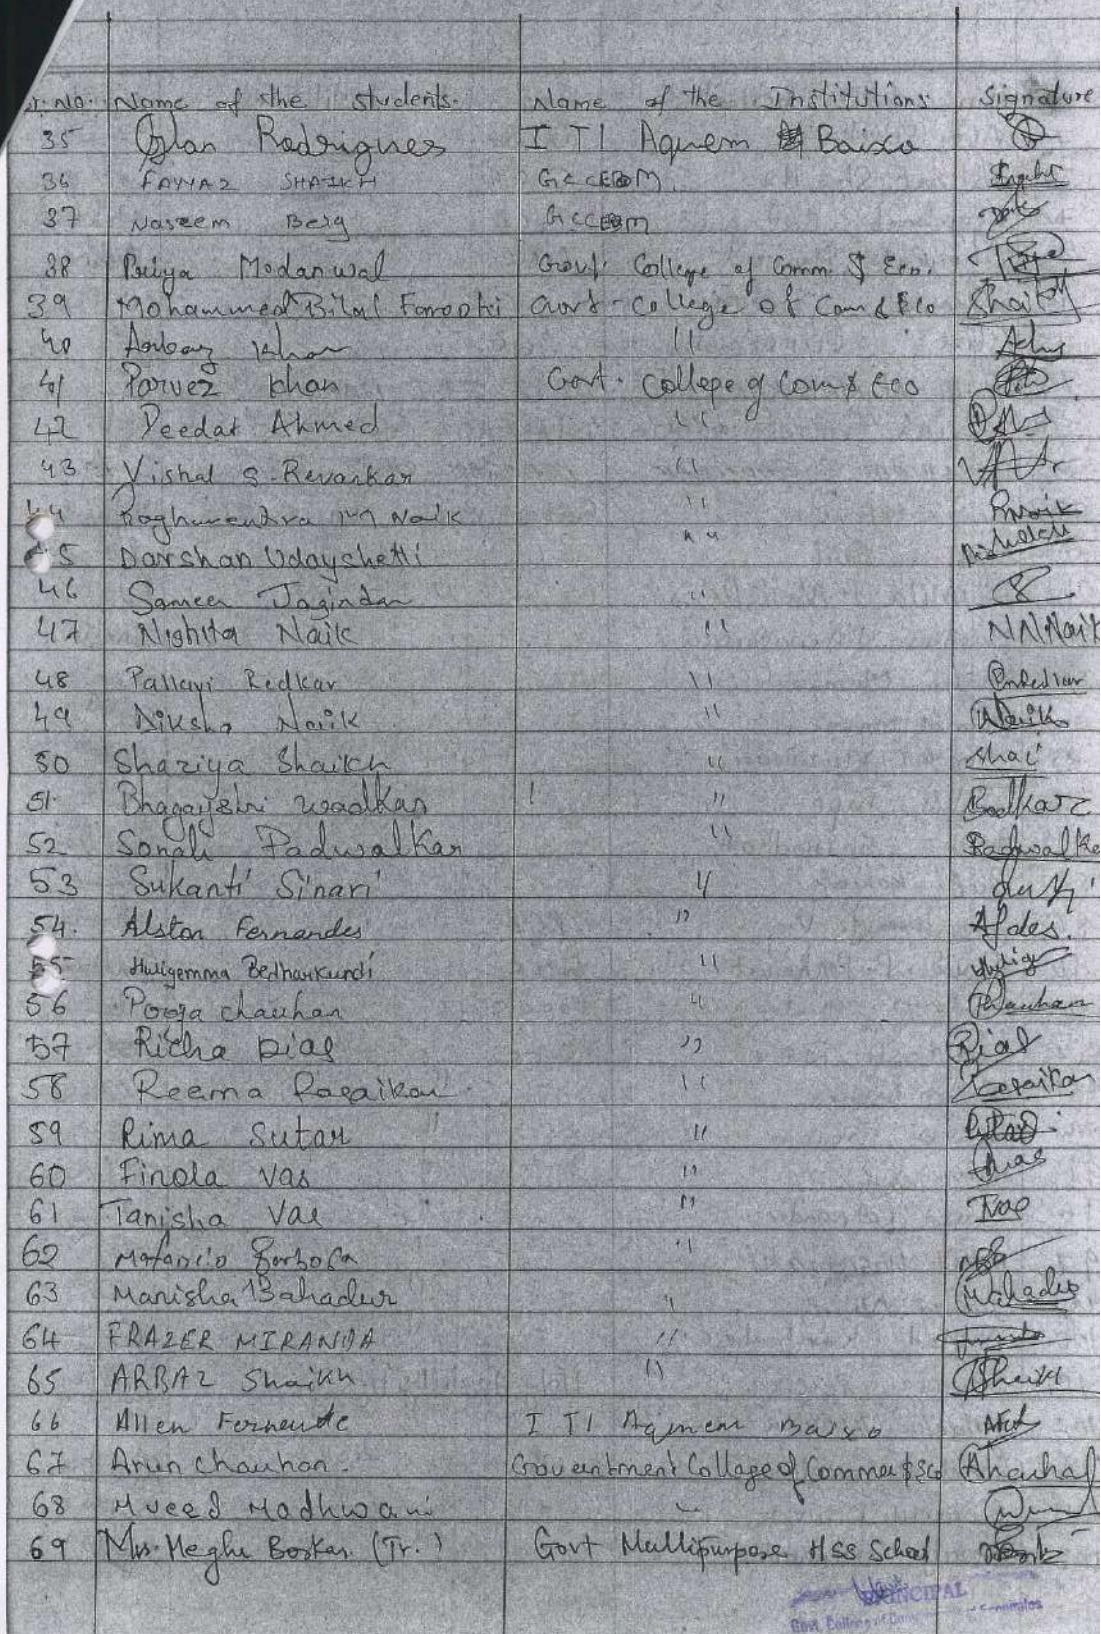 Sr. No. Name of the students. Name of the Institutions Signature
35 Glan Rodrigues I T I Aquem Baixo
36 FAWAZ SHAIKH GCCEBM
37 Naseem Berg GCCEBM
38 Priya Modanwal Govt. College of Comm. & Eco.
39 Mohammed Bilal Farooki Govt - College of Com & Eco Shaikh
40 Arbaz Khan 11
41 Parvez Khan Govt. College of Com & Eco
42 Deedar Ahmed 11
43 Vishal S. Revankar 11
44 Raghavendra Naik 11 Pnaik
45 Darshan Udayshetti " "
46 Sameer Jogindar 11
47 Nishita Naik 11 NNNaik
48 Pallavi Redkar 11 PnRedkar
49 Diksha Naik 11 Naik
50 Shaziya Shaikh 11 Shai
51. Bhagayshri Wadkar 11 Badkar
52 Sonali Padwalkar 11 Padwalka
53 Sukanti Sinari 11
54. Alston Fernandes 11 Afdes.
55 Huligemma Bedharkundi 11 Hulig
56 Pooja chauhan 11 Pchauhan
57 Richa Dias 11 RDias
58 Reema Rasaikar 11 Rasaikar
59 Rima Sutar 11
60 Finola Vas 11 Fvas
61 Tanisha Vas 11 TVas
62 Barbosa 11
63 Manisha Bahadur 11 Mahadur
64 FRAZER MIRANDA 11
65 ARBAZ Shaikh 11 AShaikh
66 Allen Fernande I T I Aqmem Baixo
67 Arun Chauhan. Government Collage of Commer & Eco Achauha
68 Mueed Madhwani "
69 Mrs. Megha Borkar (Tr.) Govt Mullipurpose HSS School
PRINCIPAL
Govt. College of Com